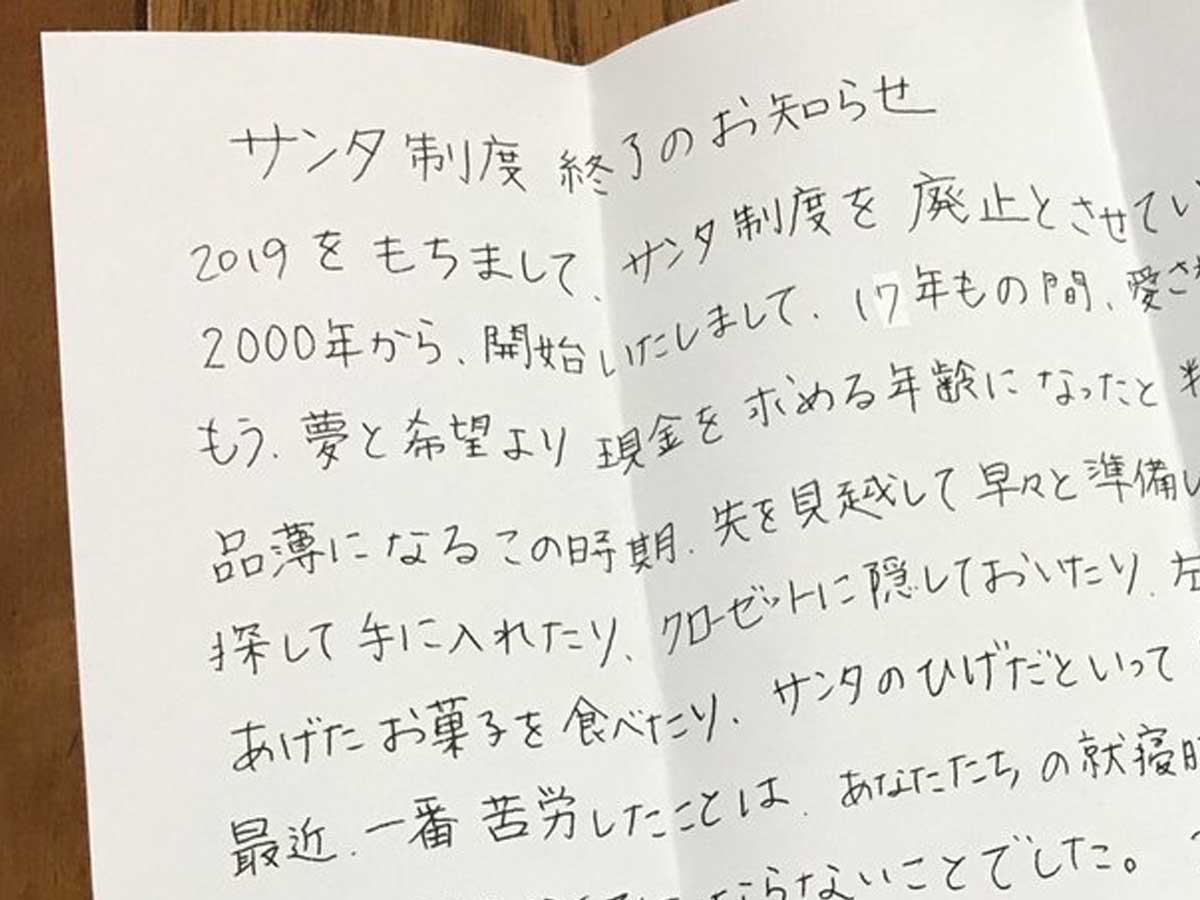 サンタ制度 終了のお知らせ
2019をもちまして、サンタ制度を廃止とさせてい
2000年から、開始いたしまして、17年もの間、愛され
もう、夢と希望より現金を求める年齢になったと判
品薄になるこの時期、先を見越して早々と準備し
探して手に入れたり、クローゼットに隠しておいたり、左
あげたお菓子を食べたり、サンタのひげだといって
最近、一番苦労したことは、あなたたちの就寝時
ならないことでした。